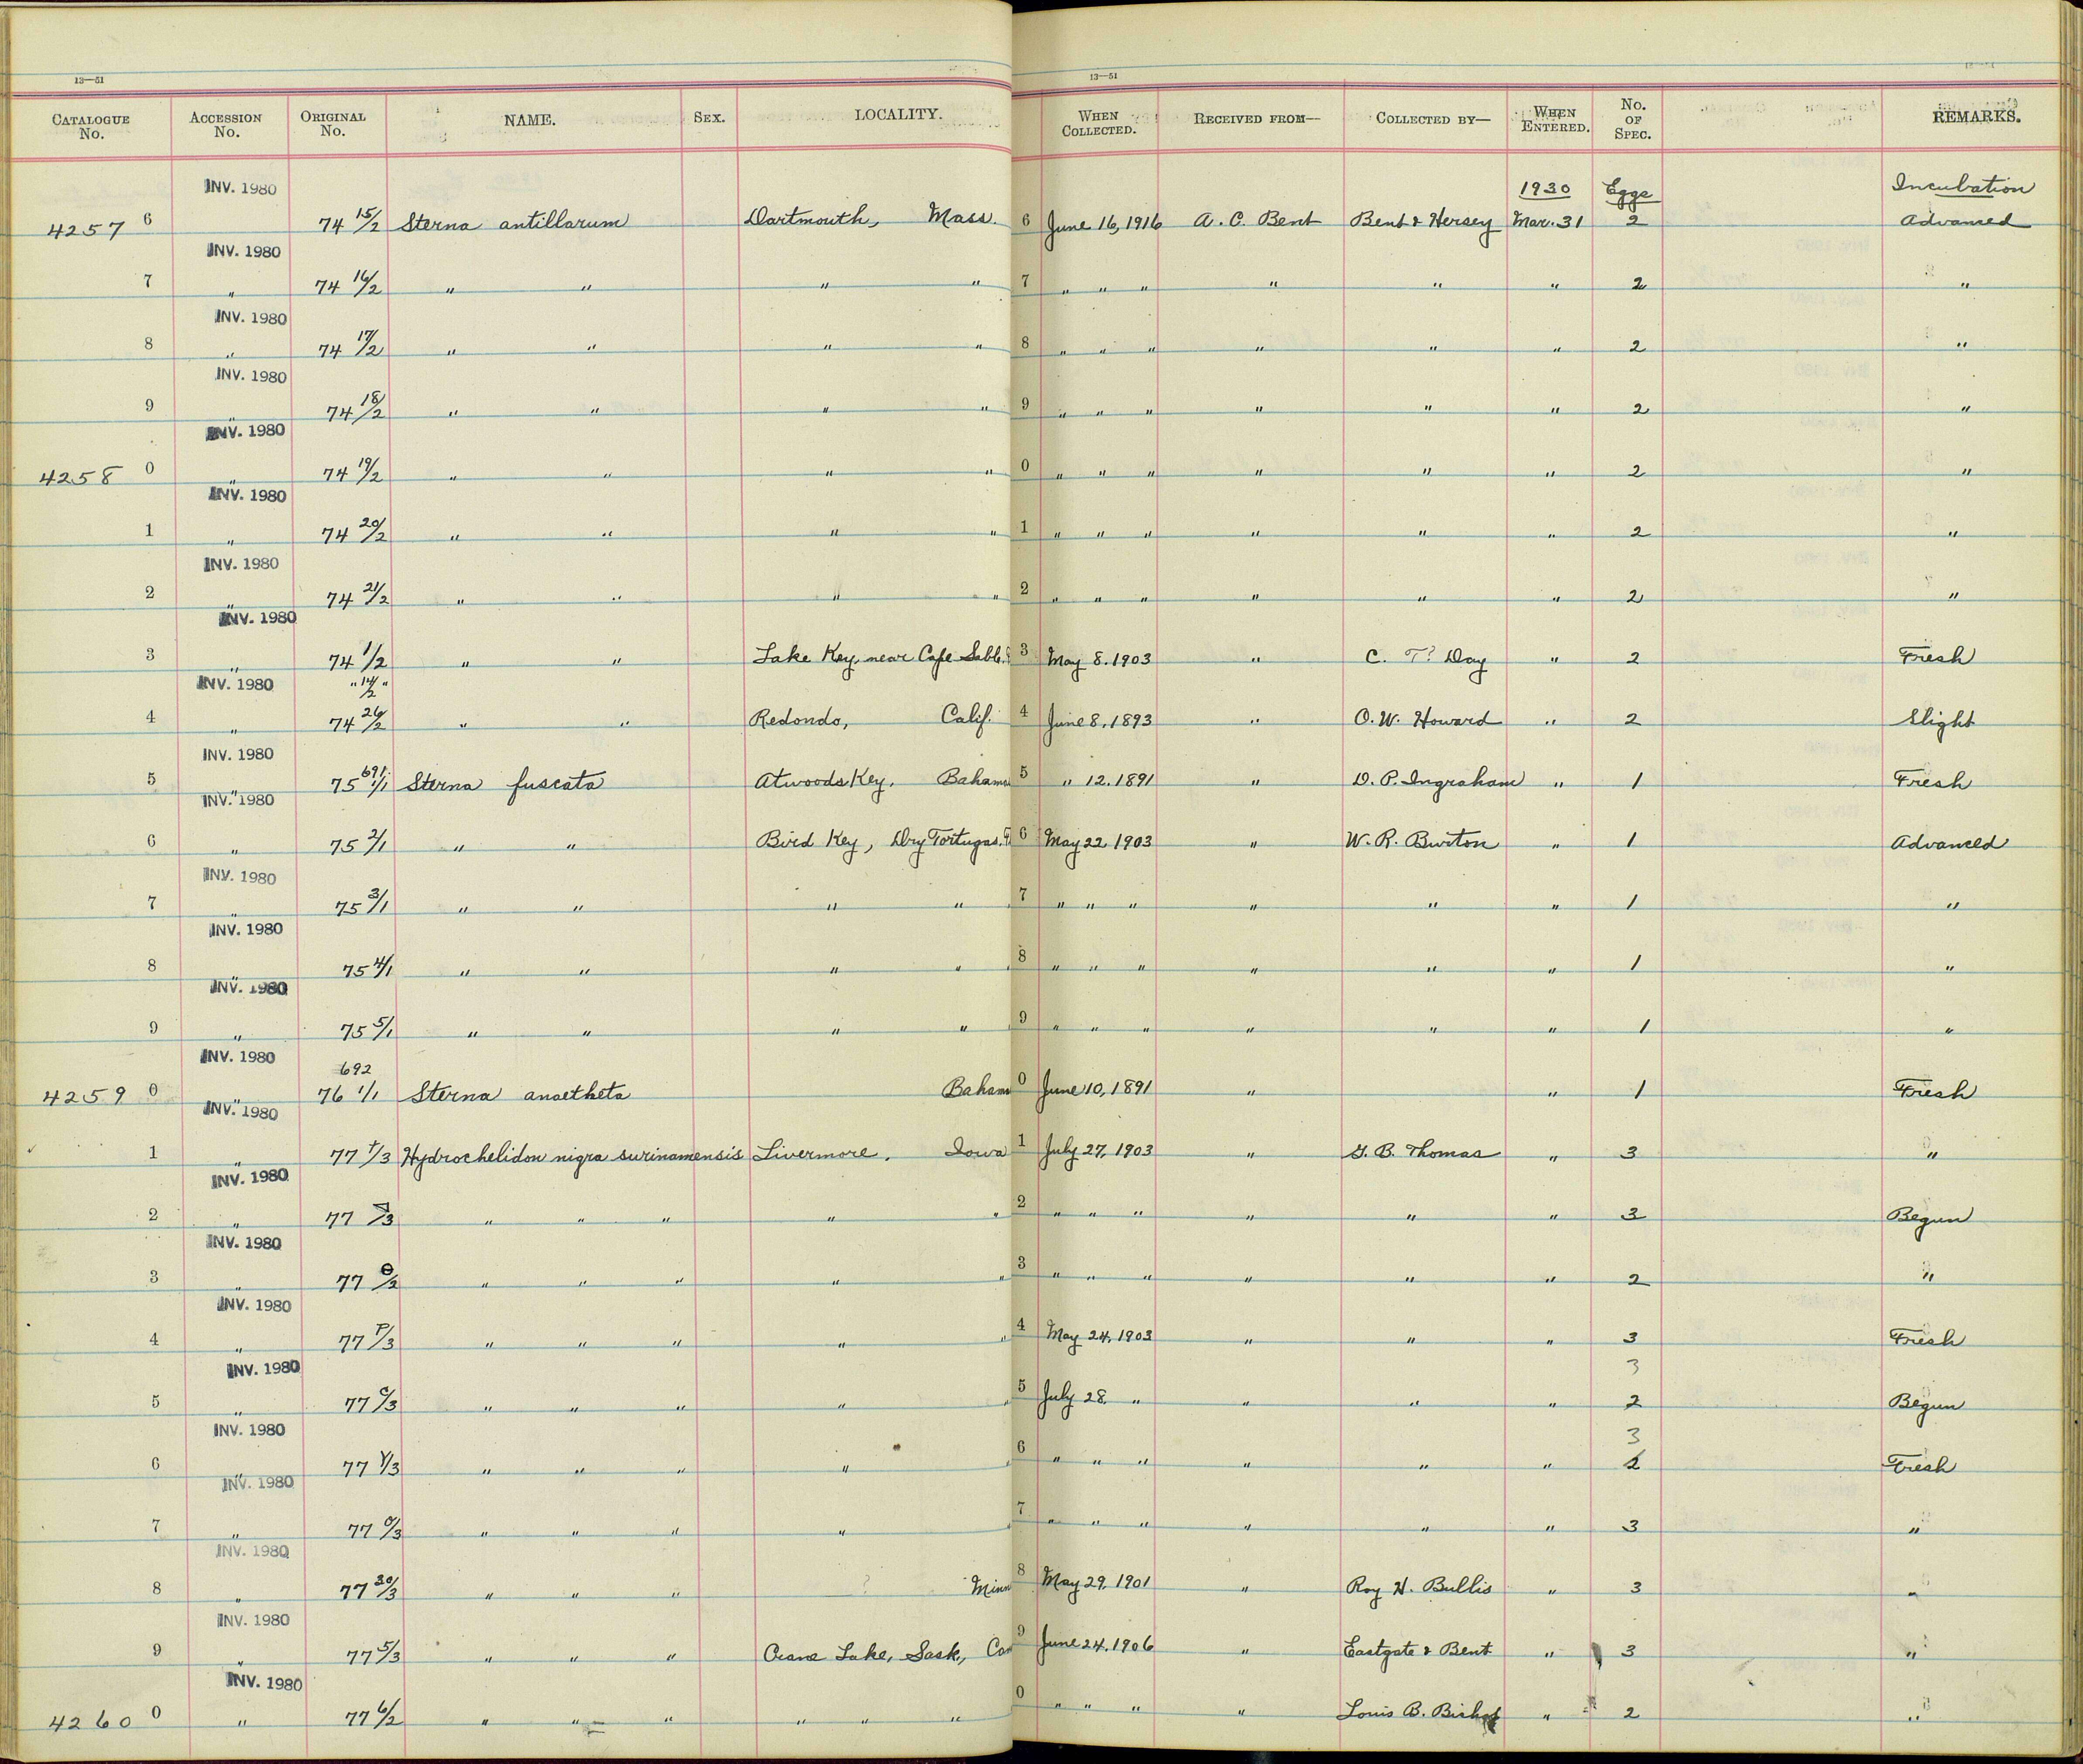 13—51 13—51
CATALOGUE No. ACCESSION No. ORIGINAL No. NAME. SEX. LOCALITY. WHEN COLLECTED. RECEIVED FROM— COLLECTED BY— WHEN ENTERED. No. OF SPEC. REMARKS.
INV. 1980 1930 Eggs Incubation
4257 6 74 15/2 Sterna antillarum Dartmouth, Mass. 6 June 16, 1916 A. C. Bent Bent & Hersey Mar. 31 2 Advanced
INV. 1980
7 " 74 16/2 " " " " 7 " " " " " " 2 "
INV. 1980
8 " 74 17/2 " " " " 8 " " " " " " 2 "
INV. 1980
9 " 74 18/2 " " " " 9 " " " " " " 2 "
INV. 1980
4258 0 " 74 19/2 " " " " 0 " " " " " " 2 "
INV. 1980
1 " 74 20/2 " " " " 1 " " " " " " 2 "
INV. 1980
2 " 74 21/2 " " " " 2 " " " " " " 2 "
INV. 1980
3 " 74 1/2 " " Lake Key, near Cape Sable. 3 May 8. 1903 " C. T? Day " 2 Fresh
INV. 1980 " 14/2 "
4 " 74 26/2 " " Redondo, Calif. 4 June 8, 1893 " O. W. Howard " 2 Slight
INV. 1980 691
5 " 75 1/1 Sterna fuscata Atwoods Key, Bahama 5 " 12. 1891 " D. P. Ingraham " 1 Fresh
INV. 1980
6 " 75 2/1 " " Bird Key, Dry Tortugas. 6 May 22 1903 " W. R. Burton " 1 Advanced
INV. 1980
7 " 75 3/1 " " " " 7 " " " " " " 1 "
INV. 1980
8 " 75 4/1 " " " " 8 " " " " " " 1 "
INV. 1980
9 " 75 5/1 " " " " 9 " " " " " " 1 "
INV. 1980 692
4259 0 " 76 1/1 Sterna anaetheta Baham 0 June 10, 1891 " " 1 Fresh
INV. 1980
1 " 77 /3 Hydrochelidon nigra surinamensis Livermore, Iowa 1 July 27, 1903 " G. B. Thomas " 3 "
INV. 1980
2 " 77 /3 " " " " " 2 " " " " " " 3 Begun
INV. 1980
3 " 77 /2 " " " " " 3 " " " " " " 2 "
INV. 1980
4 " 77 P/3 " " " " " 4 May 24, 1903 " " " 3 Fresh
INV. 1980 3
5 " 77 C/3 " " " " " 5 July 28 " " " " 2 Begun
INV. 1980 3
6 " 77 Y/3 " " " " 6 " " " " " " 2 Fresh
INV. 1980
7 " 77 /3 " " " " 7 " " " " " " 3 "
INV. 1980
8 " 77 30/3 " " " ? Minn 8 May 29, 1901 " Roy H. Bullis " 3 "
INV. 1980
9 " 77 5/3 " " " Crane Lake, Sask., Can 9 June 24, 1906 " Eastgate & Bent " 3 "
INV. 1980
4260 0 " 77 6/2 " " " " " " 0 " " " " Louis B. Bishop " 2 "